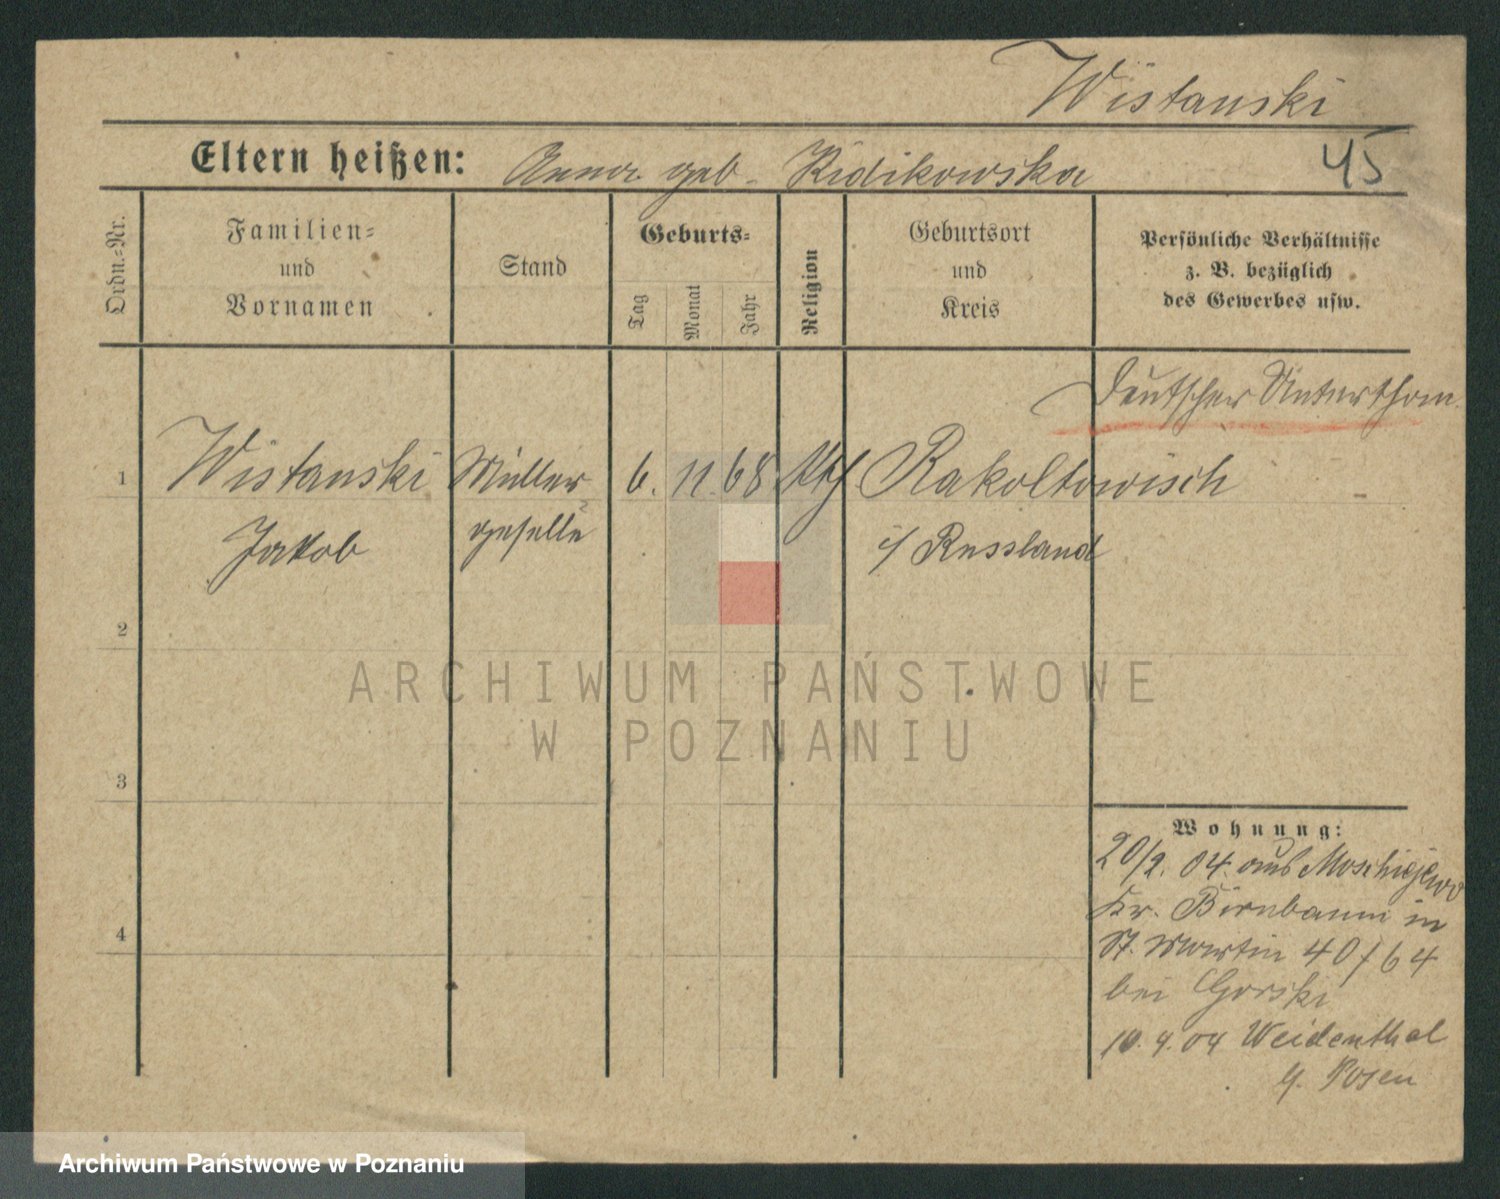 Wistanski
Eltern heißen: Anna geb. Ridikowska
45
Ordn.-Nr.
Familien-
und
Vornamen
Stand
Geburts-
Tag
Monat
Jahr
Religion
Geburtsort
und
Kreis
Persönliche Verhältnisse
z. B. bezüglich
des Gewerbes usw.
Deutscher Unterthan
1 Wistanski Müller 6. 11. 68 Kth. Rakoltowisch
Jakob geselle i/ Russland
2
3
4
Wohnung:
20/2. 04. aus
Kr. Birnbaum in
St. Martin 40/64
bei Gorski
10. 4. 04 Weidenthal
Posen
ARCHIWUM PAŃSTWOWE
W POZNANIU
Archiwum Państwowe w Poznaniu